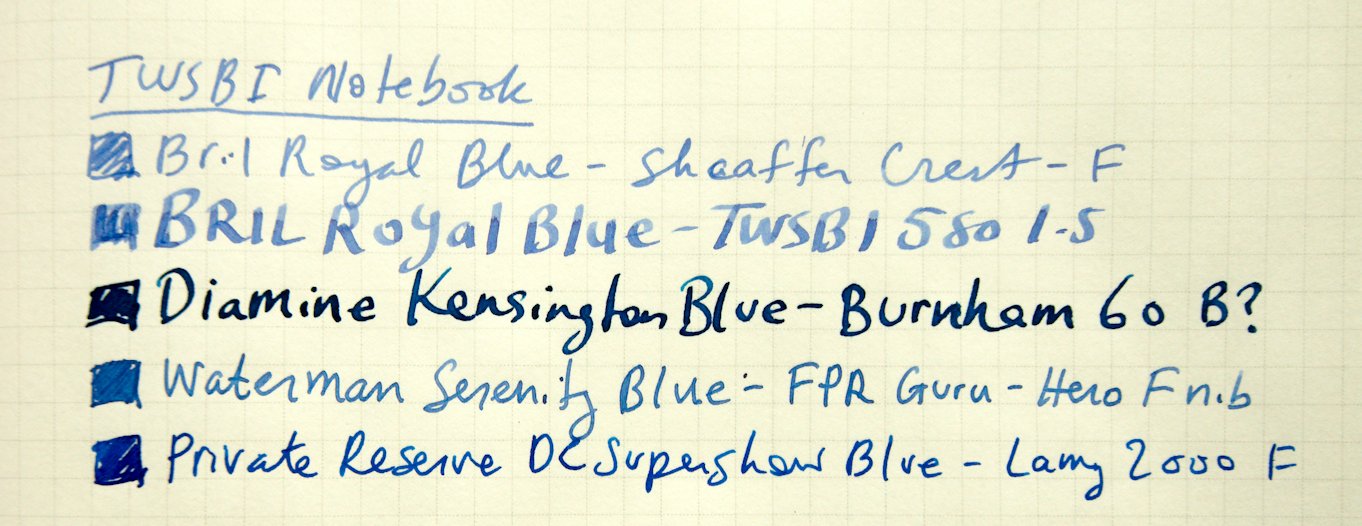 TWSBI Notebook
Bril Royal Blue - Sheaffer Crest - F
BRIL Royal Blue - TWSBI 580 1.5
Diamine Kensington Blue - Burnham 60 B?
Waterman Serenity Blue - FPR Guru - Hero F nib
Private Reserve DC Supershow Blue - Lamy 2000 F